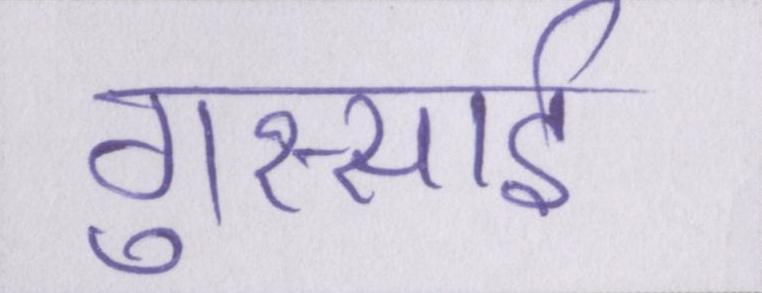 गुस्साई